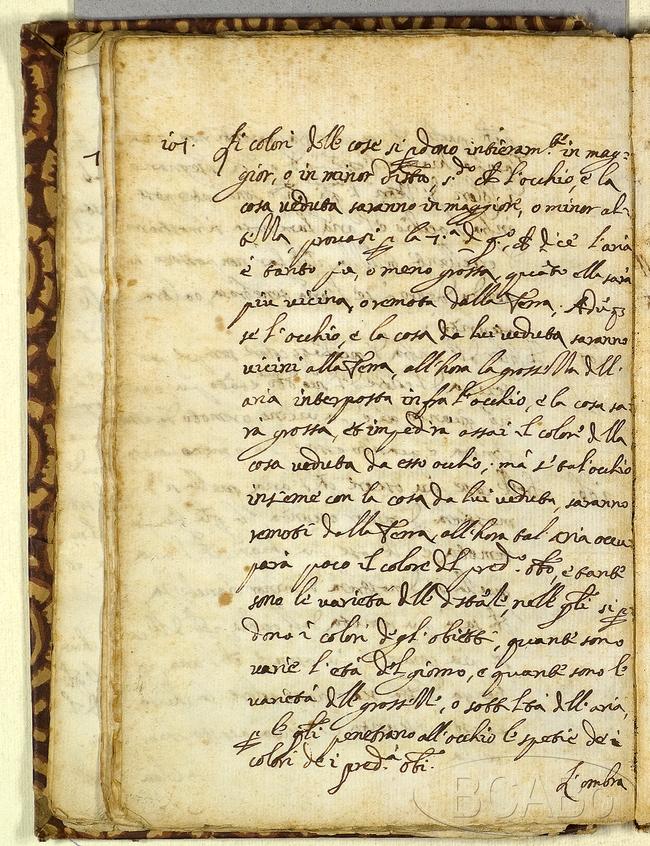 101. Li colori delle cose si p̱dono intieram.te in mag=
gior, o in minor dista, s.do ch̄ l'occhio, e la
cosa veduta saranno in maggiore, o minor al=
tezza, provasi p̱ la 7.a dq.o, ch̄ dice l'aria
è tanto più, o meno grossa, quāto ella sarà
più vicina, o remota dalla Terra, Adūq3
se l'occhio, e la cosa da lui veduta saranno
vicini alla Terra, all'hora la grossezza dell'
aria interposta infrà l'occhio, e la cosa sa=
rà grossa, et impedirà assai il colore della
cosa veduta da esso occhio, mà se tal'occhio
insieme con la cosa da lui veduta, saranno
remoti dalla Terra, all'hora tal'aria occu=
parà poco il colore del pred.o obto, e tante
sono le varietà delle distāze nelle qli si p̱=
dono i colori degl'obietti, quante sono
varie l'età del giorno, e quante sono le
varietà delle grossezze, o sottiltà dell'aria,
p̱ le qli penetrano all'occhio le spetie de i
colori de i pred.i obi.
L'ombra
BCABo